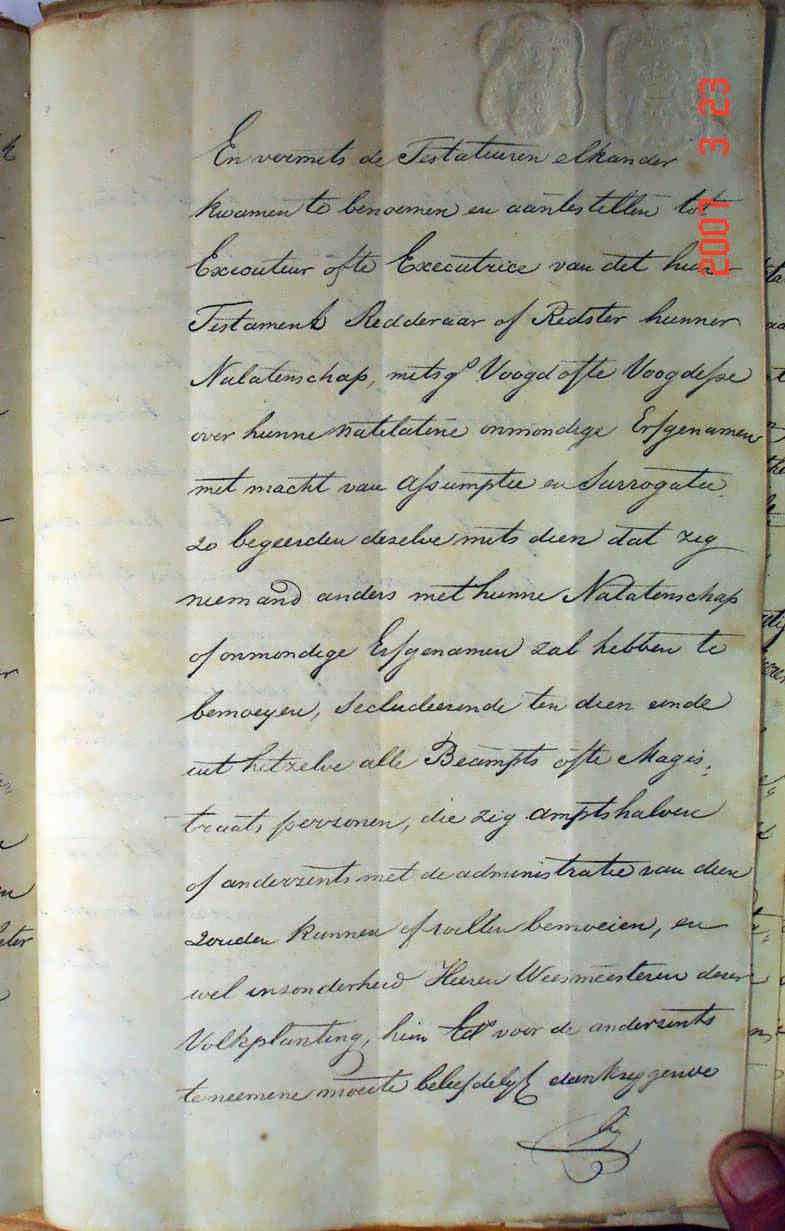 2007 3 23
En vermits de Testateuren elkander
kwamen te benoemen en aantestellen tot
Executeur ofte Executrice van dit hun
Testament Redderaar of Redster hunner
Nalatenschap, mitsgs Voogd ofte Voogdesse
over hunne natelatene onmondige Erfgenamen
met macht van assumptie en Surrogatie
zo begeerden dezelve mits dien dat zig
niemand anders met hunne Nalatenschap
of onmondige Erfgenamen zal hebben te
bemoeyen, Secludeerende ten dien einde
uit hetzelve alle Beampts ofte Magis:
traats personen, die zig amptshalven
of anderzints met de administratie van dien
zouden kunnen of willen bemoeien, en
wel inzonderheid Heeren Weesmeesteren dezer
Volkplanting, hun Eds voor de anderzints
te neemene moeite beleefdelijk dankzeggende